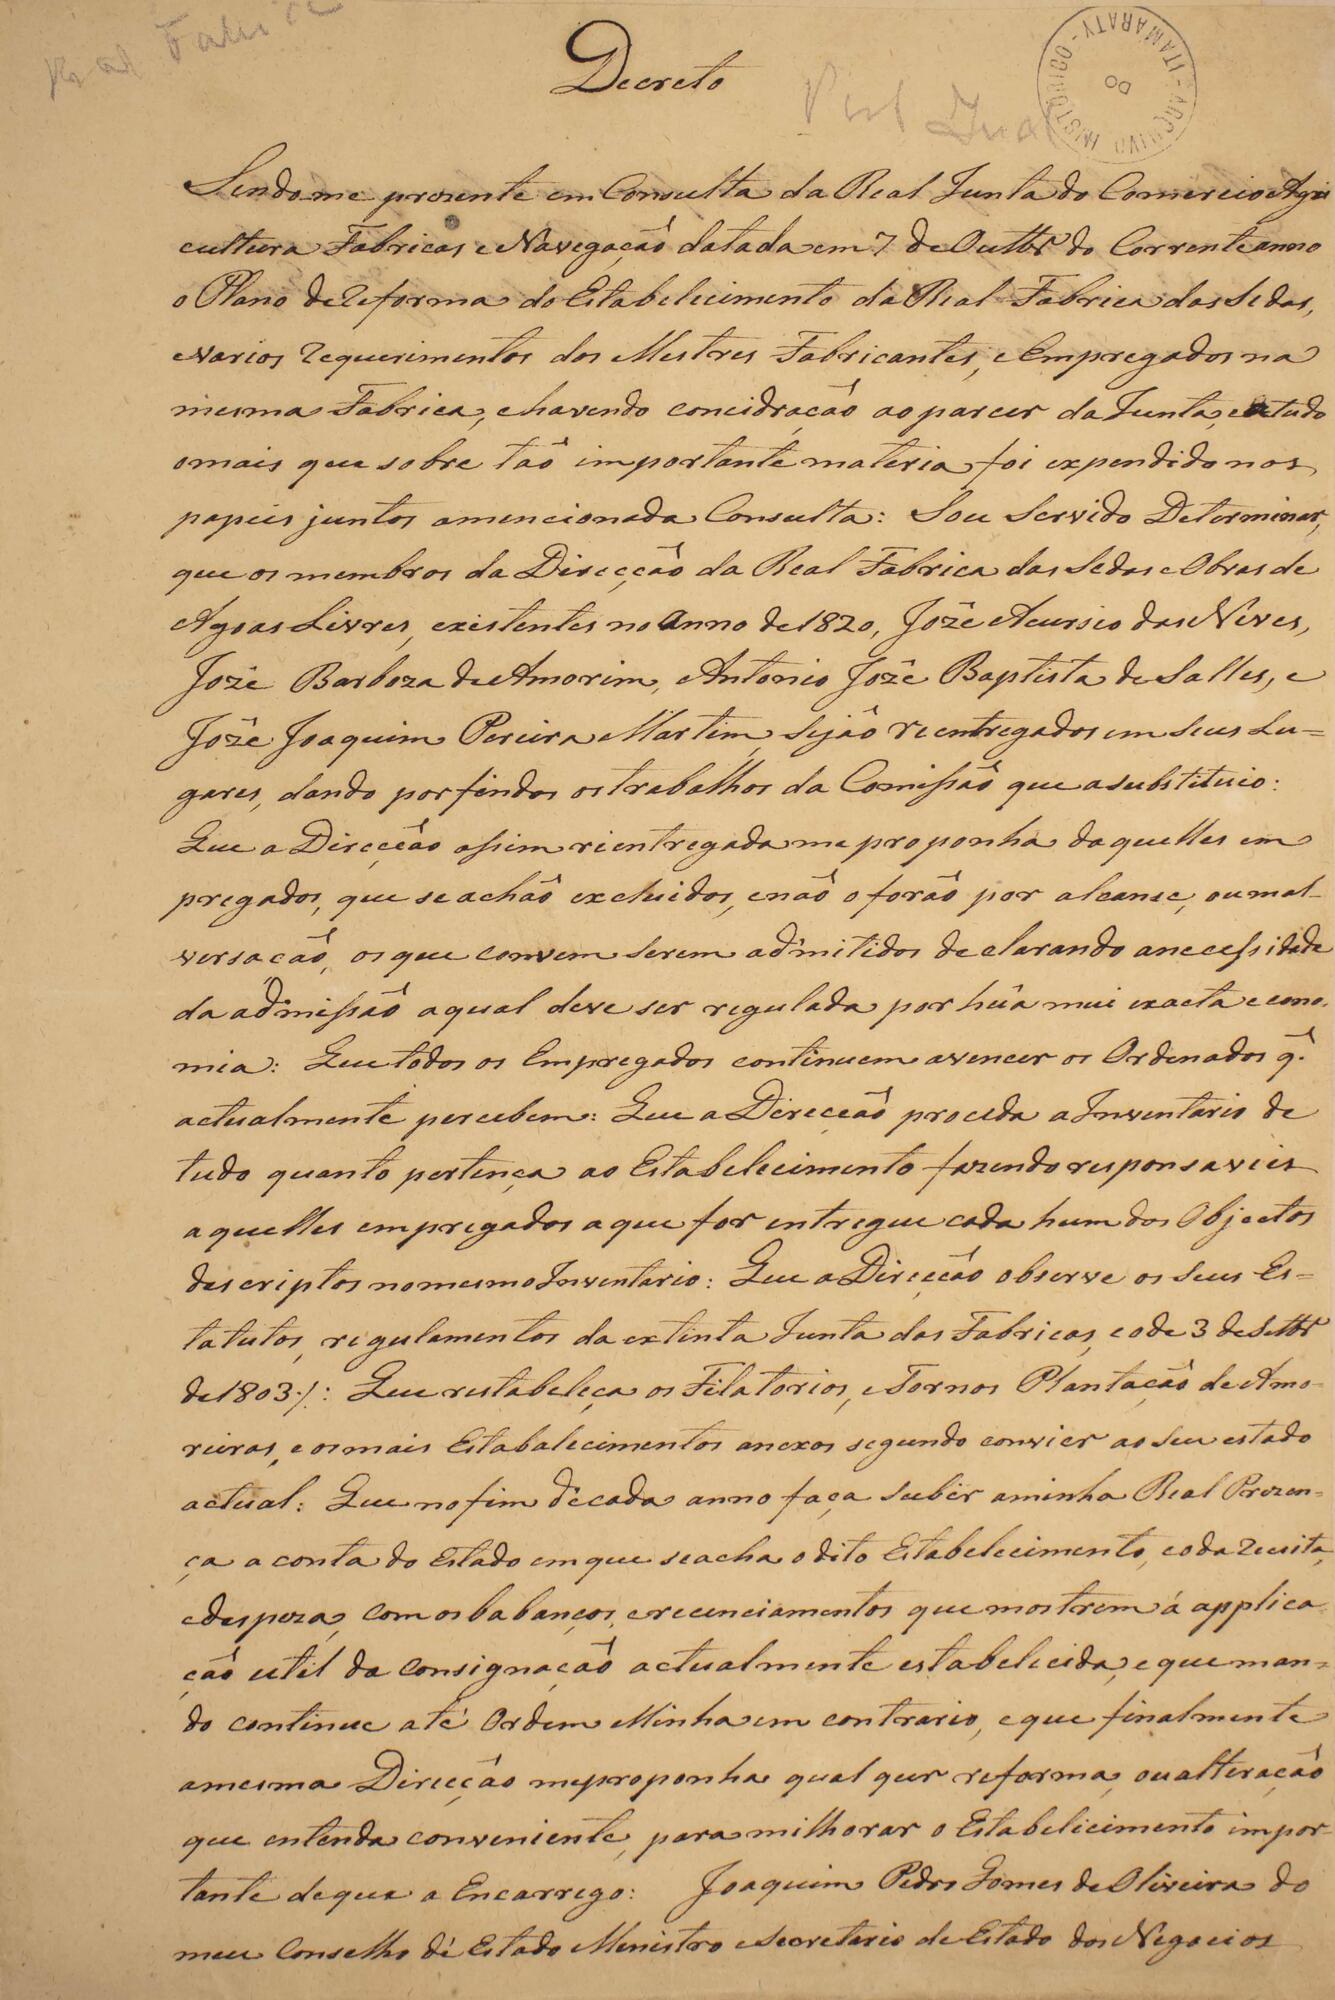 Real Fabrica
Decreto
ITAMARATY - ARCHIVO HISTÓRICO - DO
Sendo-me prezente em Consulta da Real Junta do Comercio Agri
cultura Fabricas e Navegação datada em 7 de Outbr.º do Corrente anno
o Plano de Reforma do Estabelecimento da Real Fabrica das Sedas,
e varios Requerimentos dos Mestres Fabricantes, e Empregados na
mesma Fabrica, e havendo concidração ao parcer da Junta, e a tudo
o mais que sobre tão importante materia foi expendido nos
papeis juntos a mencionada Consulta: Sou Servido Determinar,
que os membros da Direcção da Real Fabrica das Sedas e Obras de
Agoas Livres, existentes no anno de 1820, Jozé Acursio das Neves,
Jozé Barboza de Amorim, Antonio Jozé Baptista de Salles, e
Jozé Joaquim Pereira Martim, sejão reentregados em seus Lu=
gares, dando por findos os trabalhos da Comissão que a substituio:
Que a Direcção assim rientregada me proponha daquelles em
pregados, que se achão excluidos, e não o forão por alcanse, ou mal-
versacão, os que convem serem admitidos declarando a necessidade
da admissão a qual deve ser regulada por hũa mui exacta econo-
mia: Que todos os Empregados continuem a vencer os Ordenados q̃.
actualmente percebem: Que a Direcção proceda a Inventario de
tudo quanto pertença ao Estabelecimento fazendo responsaveis
aquelles empregados a que for entregue cada hum dos Objectos
descriptos no mesmo Inventario: Que a Direcção observe os seus Es=
tatutos, regulamentos da extinta Junta das Fabricas, e o de 3 de Settbr.º
de 1803./: Que restabeleça os Filatorios, e Tornos Plantação de Amo-
reiras, e os mais Estabalecimentos anexos segundo convier ao seu estado
actual: Que no fim de cada anno faça subir a minha Real Prezen=
ça a conta do Estado em que se acha o dito Estabelecimento, e o da Receita,
e despeza, com os babanços, e recenciamentos que mostrem á applica
ção util da consignação actualmente estabelecida, e que man=
do continue até Ordem Minha em contrario, e que finalmente
a mesma Direcção me proponha qualquer reforma, ou alteração
que entenda conveniente, para milhorar o Estabelicimento impor-
tante de que a Encarrego: Joaquim Pedro Gomes de Oliveira do
meu Conselho de Estado Ministro e Secretario de Estado dos Negocios